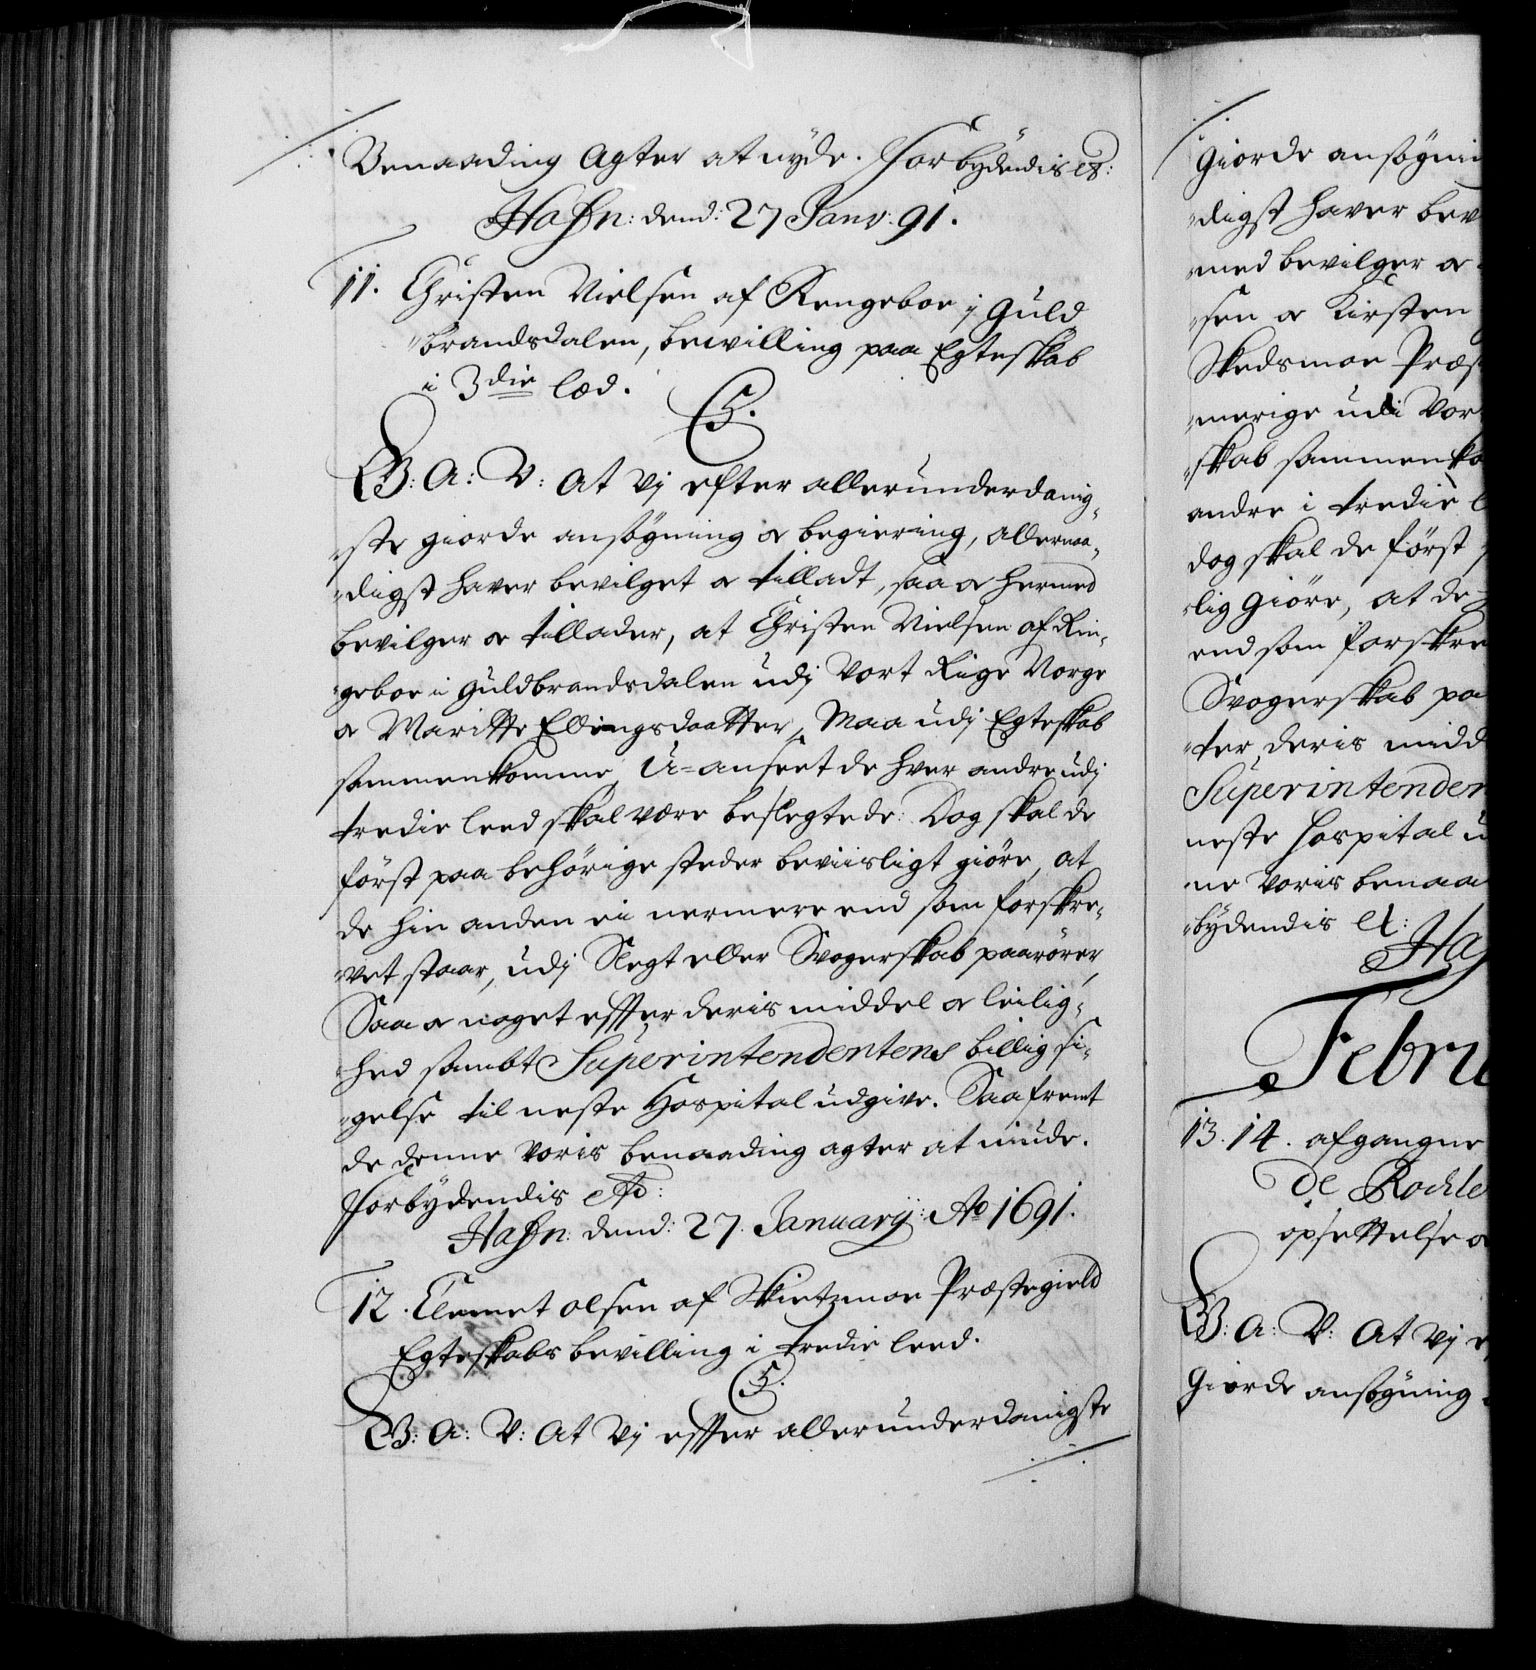 Benaading Agter at nyde. Forbydendis etc:
Hafn: dend: 27 Janv: 91.
11. Christen Nielsen af Rengeboe j Guld
brandsdalen, bewilling paa Egteskab
i 3die læd.
C5.
G: A: V: At Vj efter allerunderdanig-
ste giorde ansøgning oc begiering, allernaa-
digst haver bevilget oc tilladt, saa oc hermed
bevilger oc tillader, at Christen Nielsen af Rin-
geboe i Guldbrandsdalen udj Vort Rige Norge
oc Maritte Ellingsdaatter, Maa udj Egteskab
sammenkomme, U-anseet de hver andre udj
tredie leed skal være beslegtede: Dog skal de
først paa behörige steder beviisligt giöre, at
de hin anden ei nermere end som forskre-
vet staar, udj Slegt eller Svogerskab paarörer,
Saa oc noget effter deris middel oc leilig-
hed sambt Superintendentens billig si-
gelse til neste Hospital udgive. Saafremt
de denne Voris benaading agter at niude.
Forbydendis etc:
Hafn: dend: 27. January: Ao 1691.
12. Clemet olsen af Skietzmoe Præstegield
Egteskabs bevilling i tredie leed.
C5.
G: A: V: At Vj effter allerunderdanigste
Giorde ansøgnin
digst haver bev
med bevilger oc
sen oc Kirsten
Skedsmoe Præst
merige udi Vor
skab sammenko
andre i tredie l
dog skal de först
lig Giöre, at de
end som forskre
Svogerskab pa
ter deris midd
Superintenden
neste Hospital u
ne Voris benaa
bydendis etc:
Haf
Febru
13. 14. afgangne
De Rochle
opsettelse oc
G: A: V: At Vj e
Giorde ansøgning